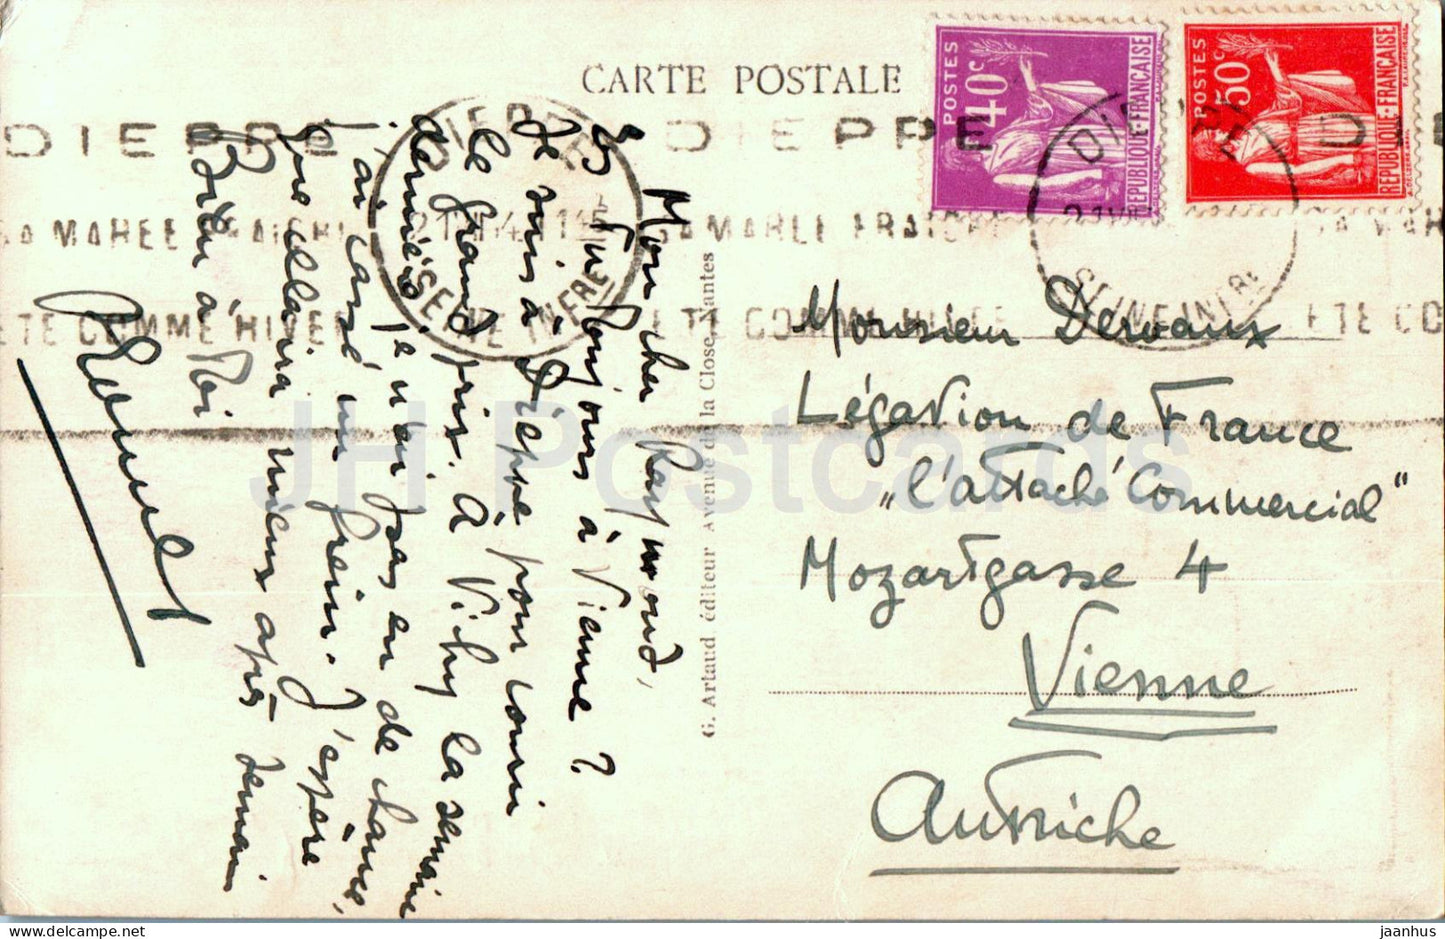 CARTE POSTALE
POSTES
40c
REPUBLIQUE-FRANÇAISE
POSTES
50c
REPUBLIQUE-FRANÇAISE
DIEPPE
SA MAREE FRAICHE
ETE COMME HIVER
DIEPPE
SEINE INFRE
DIEPPE
SA MAREE FRAICHE
ETE COMME HIVER
DIEPPE
SEINE INFRE
DIE
SA MAR
ETE CO
Mon cher Raymond,
Es tu toujours à Vienne ?
Je suis à Dieppe pour courir
le grand prix. A Vichy la semaine
dernière je n'ai pas eu de chance,
j'ai cassé un frein. J'espère
que cela ira mieux après demain
Bien à Toi
G. Artaud éditeur Avenue de la Close, Nantes
Monsieur Dervaux
Légation de France
„l'attaché Commercial"
Mozartgasse 4
Vienne
Autriche
JH Postcards
jaanhus © delcampe.net